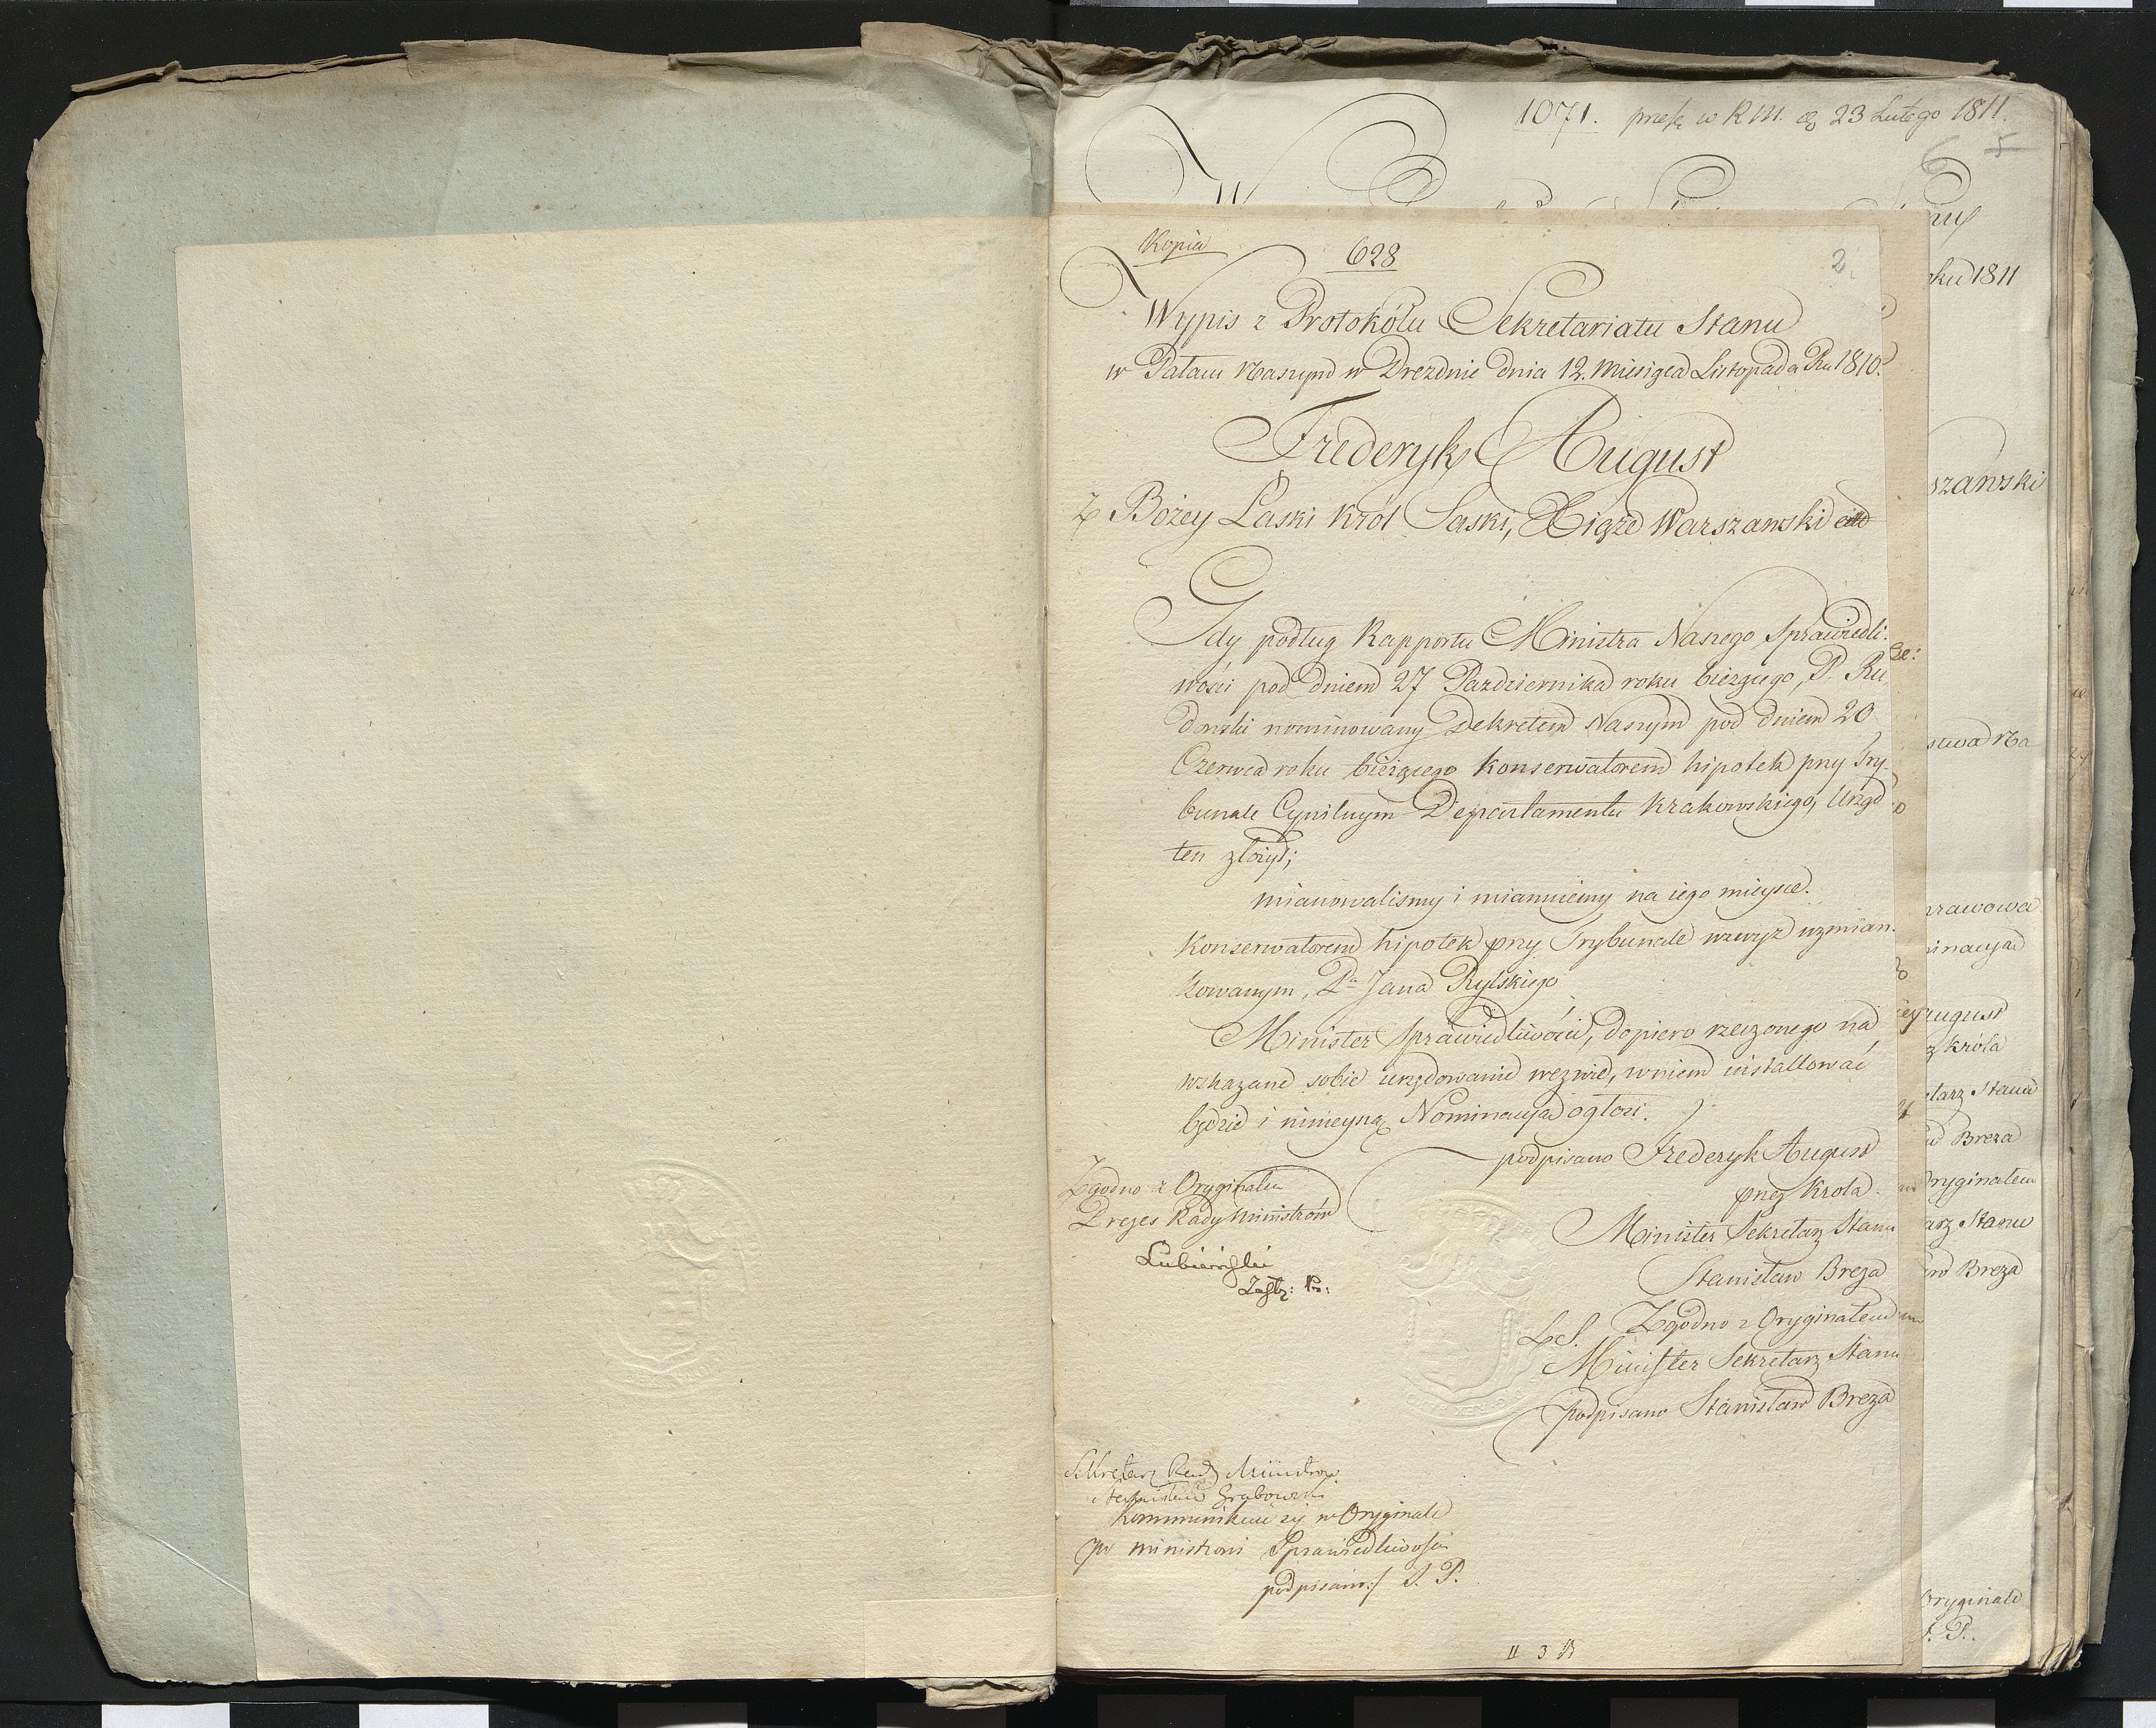 1071. prez. w R M. d. 23 Lutego 1811.
6 5
Kopia 628 2.
Wypis z Protokółu Sekretariatu Stanu
w Pałacu Naszym w Dreznie dnia 12. Miesiąca Listopada Ru 1810.
oku 1811
Frederyk August
z Bożey Łaski Król Saski, Xiąże Warszawski etc
szawski
Gdy podług Rapportu Ministra Naszego Sprawiedli-
wości pod dniem 27 Pazdziernika roku bieżącego, P. Ru
dowski nominowany Dekretem Naszym pod dniem 20
Czerwca roku bieżącego Konserwatorem hipotek przy Try-
bunale Cywilnym Departamentu Krakowskiego, Urząd
ten złożył;
mianowalismy i mianuiemy na iego mieysce.
Konserwatorem hipotek przy Trybunale wzwyż wzmian-
kowanym, Pa Jana Rylskiego
Minister Sprawiedliwości, dopiero rzeczonego na
wskazane sobie urzędowanie wezwie, w niem installować
będzie i ninieyszą Nominacyą ogłosi.
podpisano Frederyk August
przez Króla
Minister Sekretarz Stanu
Stanisław Breza
L.S. Zgodno z Oryginałem
Minister Sekretarz Stanu
podpisano Stanisław Breza
Zgodno z Oryginałem
Prezes Rady Ministrów
Łubieński
Zastę: Pr:
Sekretarz Rady Ministrow
Stanisław Grabowski
Kommunikuie się w Oryginale
JW Ministrowi Sprawiedliwości
podpisano:/ S. P.
August
z Króla
tarz Stanu
Breza
Oryginałem
arz Stanu
Breza
Oryginale
S. P.